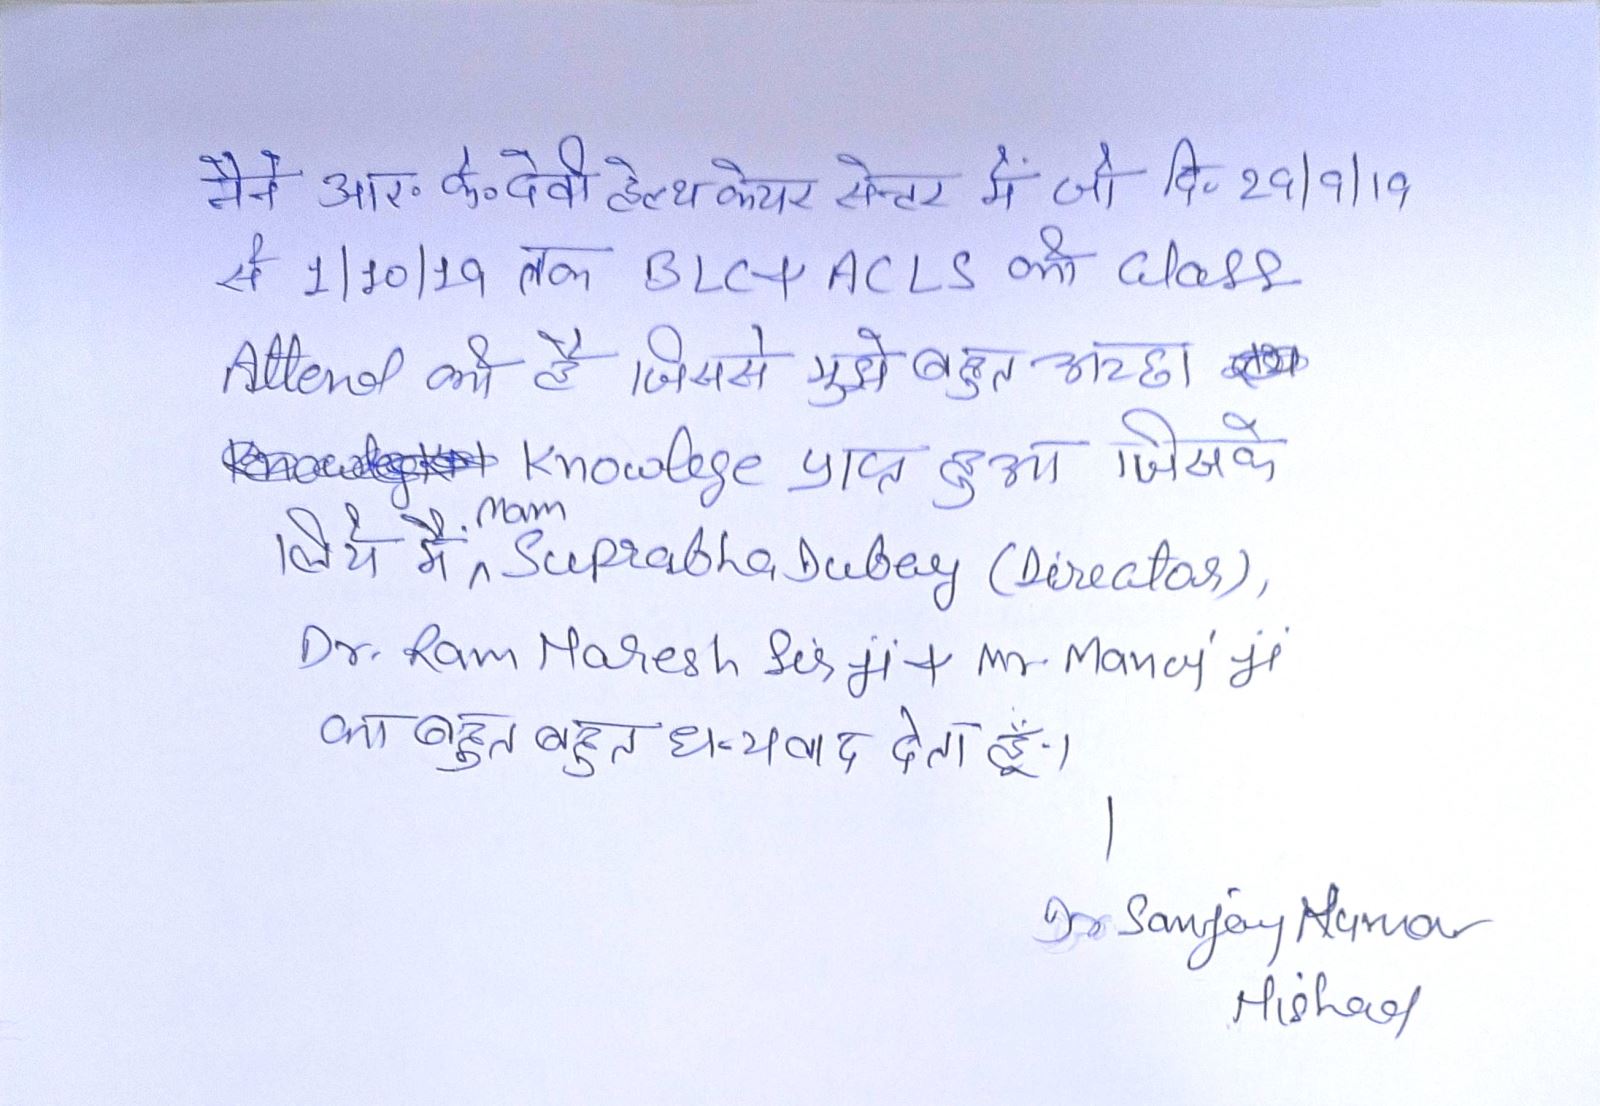 मैने आर. के. देवी हेल्थ केयर सेन्टर में जो दि. 29/9/19
से 1/10/19 तक BLC + ACLS की Class
Attend की है जिससे मुझे बहुत अच्छा
Knowlege प्राप्त हुआ जिसके
लिये मैं Mam Suprabha Dubey (Director),
Dr. Ram Naresh Sir ji + Mr. Manoj ji
का बहुत बहुत धन्यवाद देता हूँ।
Dr Sanjay Kumar
Nishad